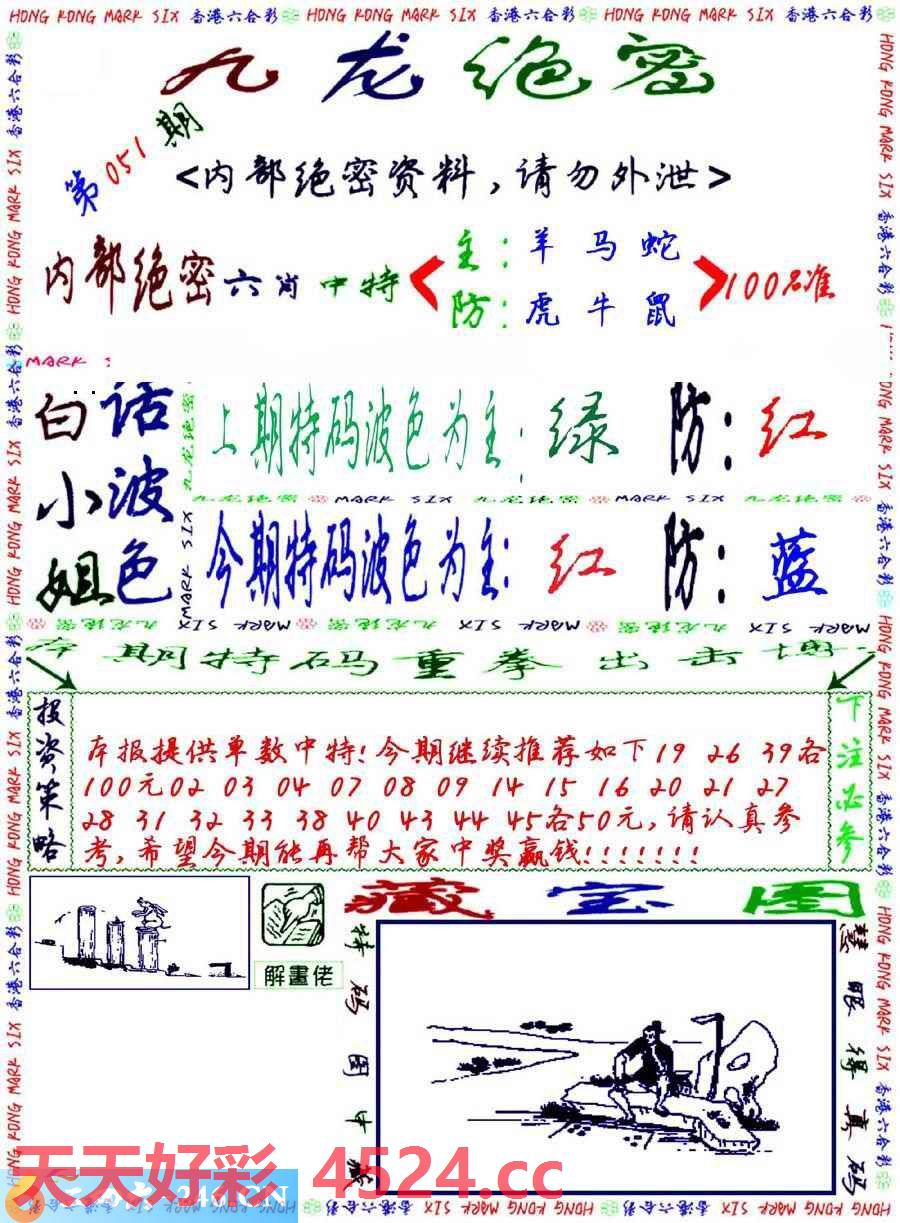 HONG KONG MARK SIX 香港六合彩 HONG KONG MARK SIX 香港六合彩 HONG KONG MARK SIX 香港六合彩
九龙绝密
第051期
<内部绝密资料,请勿外泄>
内部绝密六肖中特
主:羊马蛇
防:虎牛鼠
100%准
MARK :
白小姐
话波色
上期特码波色为主:绿 防:红
九龙绝密 MARK SIX 九龙绝密 MARK SIX 九龙绝密
今期特码波色为主:红 防:蓝
MARK SIX 九龙绝密 MARK SIX 九龙绝密 MARK SIX 九龙绝密 MARK
本期特码重拳出击博
投资策略
本报提供单数中特!今期继续推荐如下19 26 39各
100元02 03 04 07 08 09 14 15 16 20 21 27
28 31 32 33 38 40 43 44 45各50元,请认真参
考,希望今期能再帮大家中奖赢钱!!!!!!!
下注必参
藏宝图
解畫佬
特码图中
慧眼得真码
天天好彩 4524.cc
246.CN